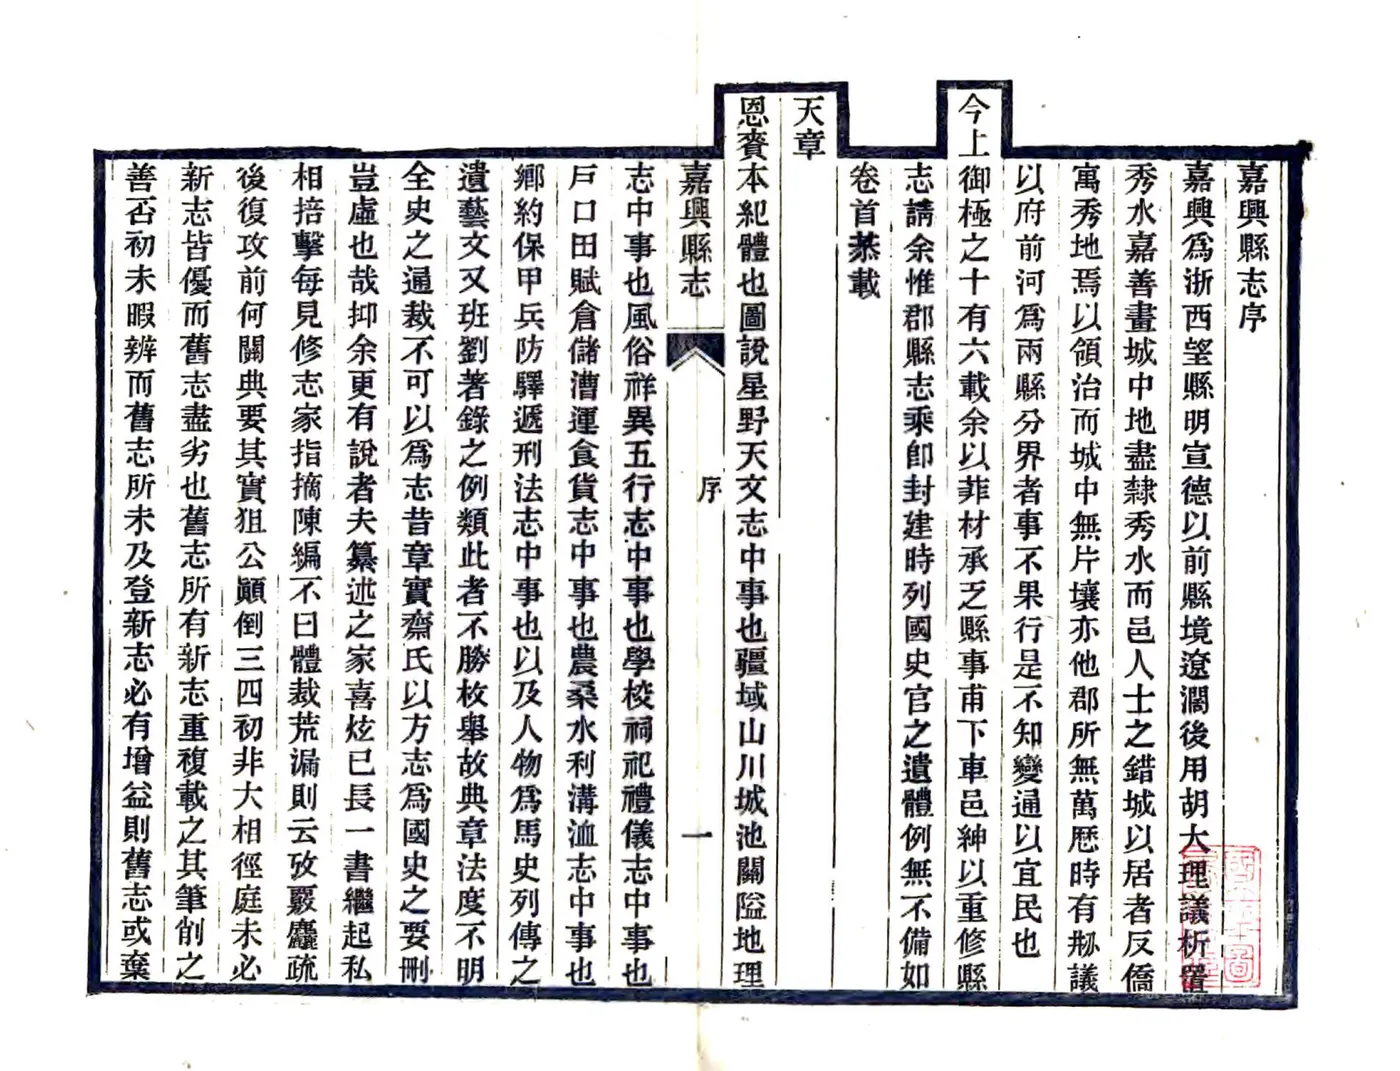 嘉興縣志序
嘉興爲浙西望縣明宣德以前縣境遼濶後用胡大理議析置
秀水嘉善畫城中地盡隸秀水而邑人士之錯城以居者反僑
寓秀地焉以領治而城中無片壤亦他郡所無萬歷時有刱議
以府前河爲兩縣分界者事不果行是不知變通以宜民也
今上御極之十有六載余以菲材承乏縣事甫下車邑紳以重修縣
志請余惟郡縣志乘卽封建時列國史官之遺體例無不備如
卷首恭載
天章
恩賚本紀體也圖說星野天文志中事也疆域山川城池關隘地理
嘉興縣志
序
一
志中事也風俗祥異五行志中事也學校祠祀禮儀志中事也
戶口田賦倉儲漕運食貨志中事也農桑水利溝洫志中事也
鄉約保甲兵防驛遞刑法志中事也以及人物爲馬史列傳之
遺藝文又班劉著錄之例類此者不勝枚舉故典章法度不明
全史之通裁不可以爲志昔章實齋氏以方志爲國史之要刪
豈虛也哉抑余更有說者夫纂述之家喜炫已長一書繼起私
相掊擊每見修志家指摘陳編不曰體裁荒漏則云攷覈麤疏
後復攻前何關典要其實狙公顚倒三四初非大相徑庭未必
新志皆優而舊志盡劣也舊志所有新志重複載之其筆削之
善否初未暇辨而舊志所未及登新志必有增益則舊志或棄